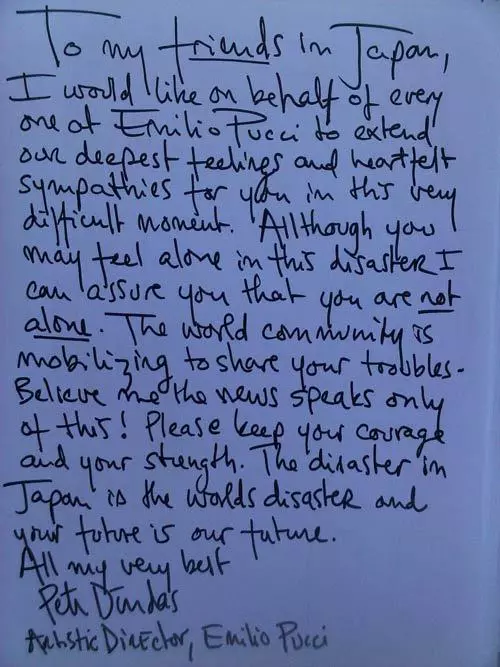 To my friends in Japan,
I would like on behalf of every
one at Emilio Pucci to extend
our deepest feelings and heartfelt
sympathies for you in this very
difficult moment. Allthough you
may feel alone in this disaster I
can assure you that you are not
alone. The world community is
mobilizing to share your troubles.
Believe me the news speaks only
of this! Please keep your courage
and your strength. The disaster in
Japan is the worlds disaster and
your future is our future.
All my very best
Peter Dundas
Artistic Director, Emilio Pucci